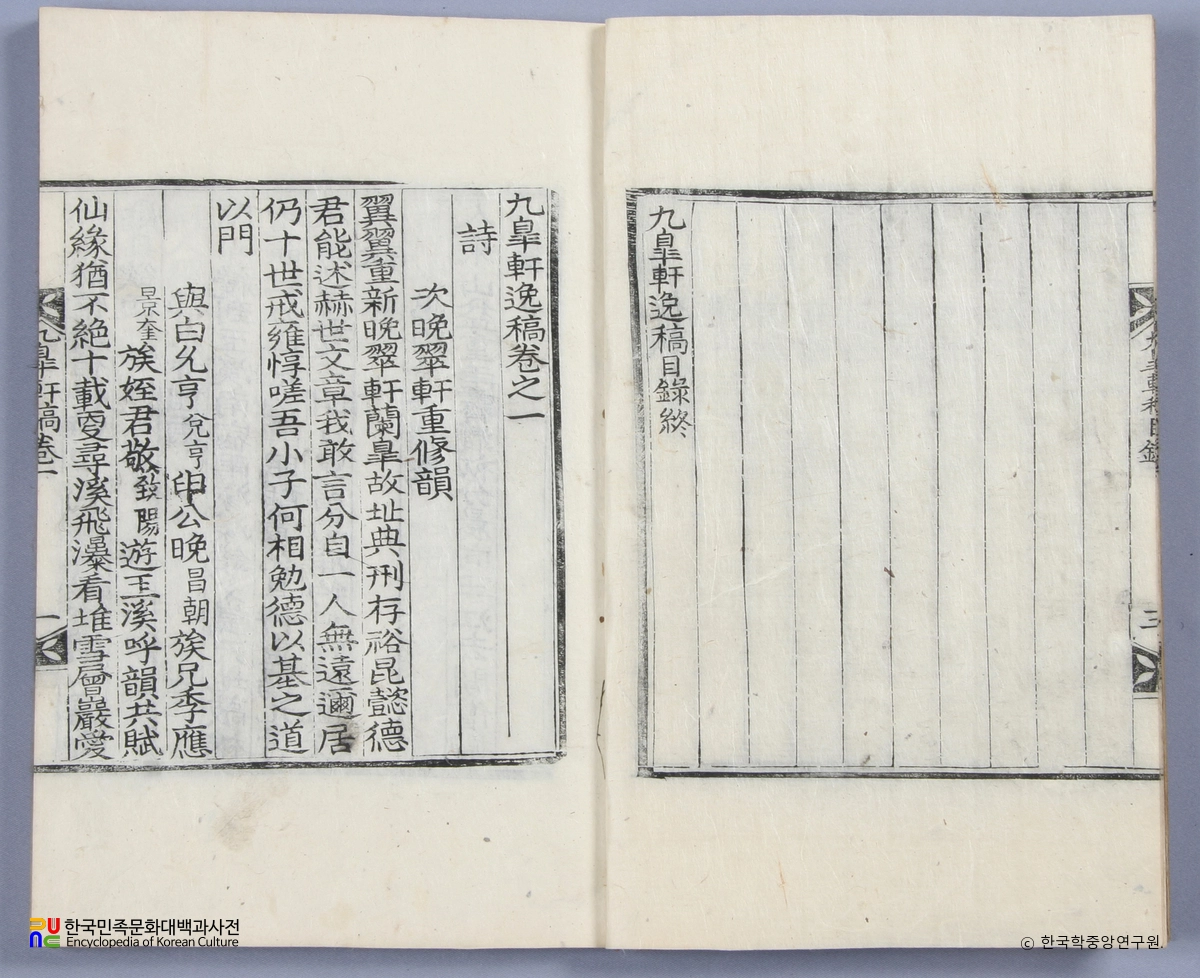 九臯軒逸稿目錄終
九臯軒逸稿卷之一
詩
次晩翠軒重修韻
翼翼重新晩翠軒蘭臯故址典刑存裕昆懿德
君能述赫世文章我敢言分自一人無遠邇居
仍十世戒雍惇嗟吾小子何相勉德以基之道
以門
與白允亨兌亨申公晩昌朝族兄季應
景奎族姪君敬致陽遊玉溪呼韻共賦
仙緣猶不絶十載更尋溪飛瀑看堆雪層巖愛
九臯軒稿卷一
一
한국민족문화대백과사전
Encyclopedia of Korean Culture
© 한국학중앙연구원